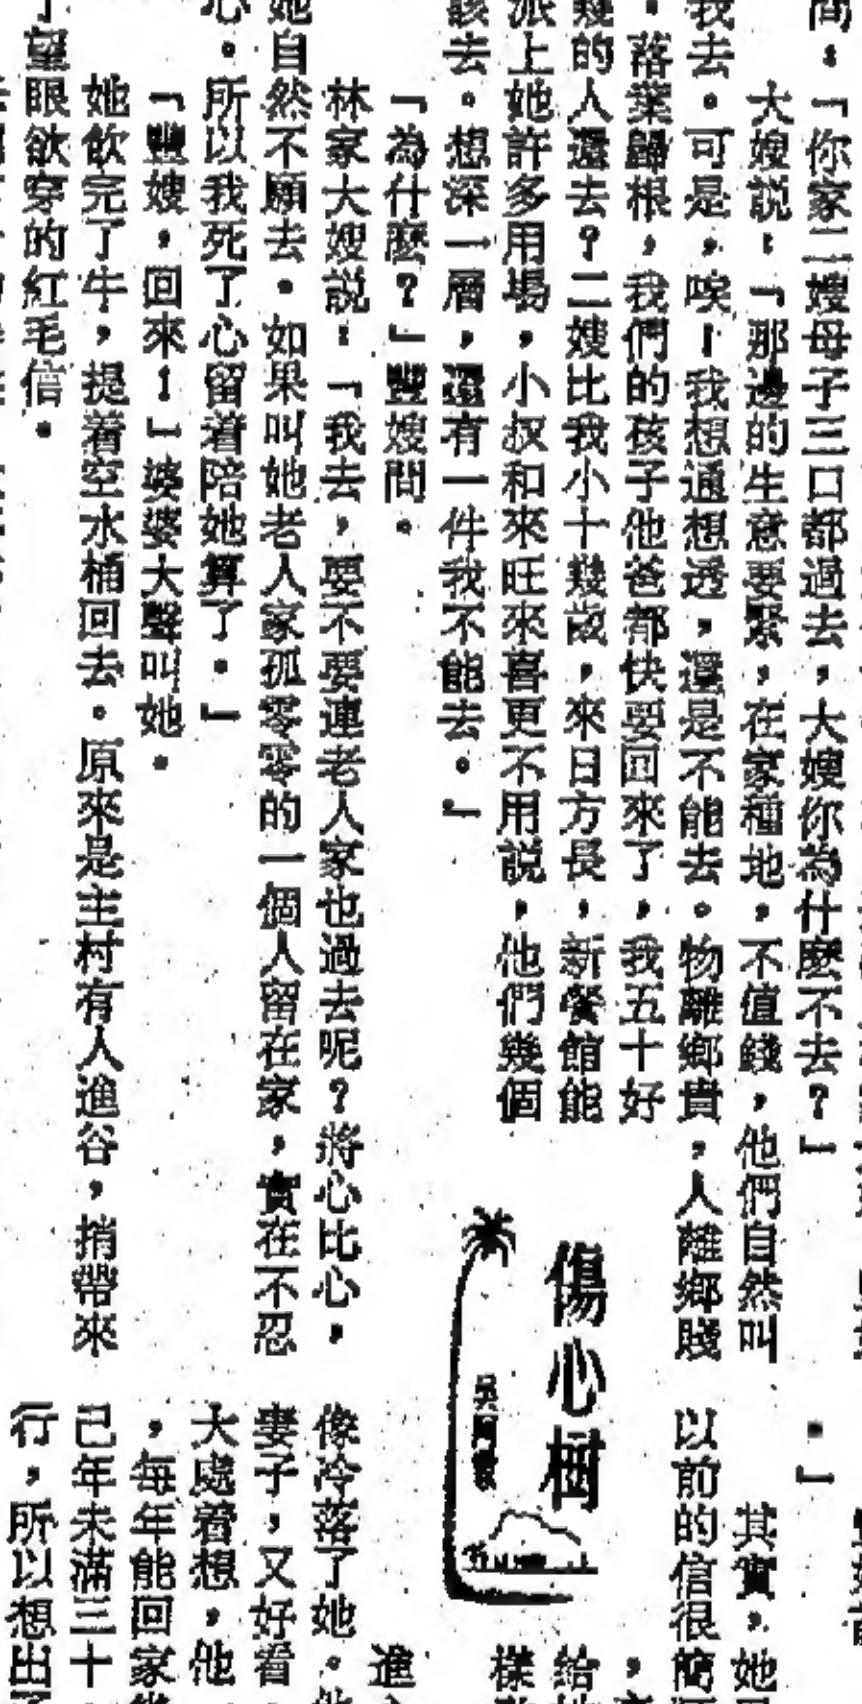 間：「你家二嫂母子三口都過去，大嫂你為什麼不去？」
大嫂説：「那邊的生意要緊，在家種地，不值錢，他們自然叫
我去。可是，唉！我想通想透，還是不能去。物離鄉貴，人離鄉賤
。落葉歸根，我們的孩子他爸都快要回來了，我五十好
幾的人還去？二嫂比我小十幾歲，來日方長，新餐館能
派上她許多用場，小叔和來旺來喜更不用説，他們幾個
該去。想深一層，還有一件我不能去。」
「為什麼？」豐嫂問。
林家大嫂説：「我去，要不要連老人家也過去呢？將心比心，
她自然不願去。如果叫她老人家孤零零的一個人留在家，實在不忍
心。所以我死了心留着陪她算了。」
「豐嫂，回來！」婆婆大聲叫她。
她飲完了牛，提着空水桶回去。原來是主村有人進谷，捎帶來
了望眼欲穿的紅毛信。
傷心树
。」
其實，她
以前的信很簡
給她
樣
進
像冷落了她。
妻子，又好看
大處着想，他
，每年能回家幾
己年未滿三十，
行，所以想出了